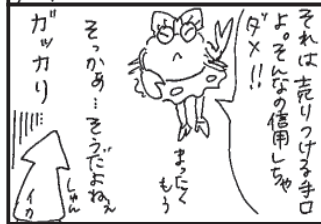 それは売りつける手口
よ。そんなの信用しちゃ
ダメ!!
まったく
もう
そっかぁ…そうだよねぇ
しゅん
ガッカリ
イカ